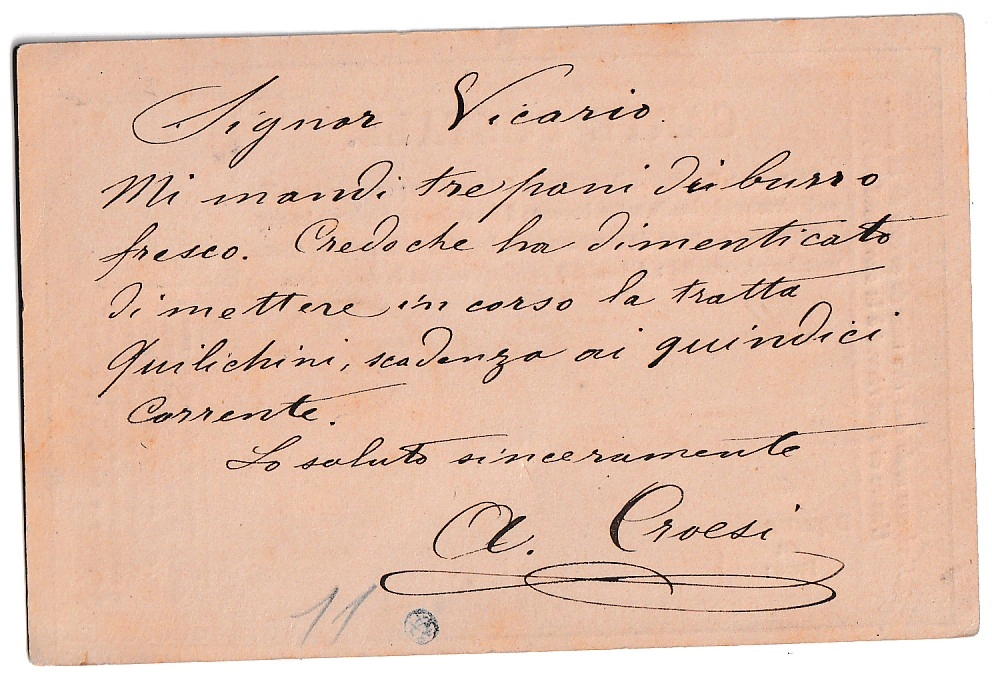 Signor Vicario.
Mi mandi tre pani di burro
fresco. Credo che ha dimenticato
di mettere in corso la tratta
Quilichini, scadenza ai quindici
corrente.
Lo saluto sinceramente
A. Croesi
11